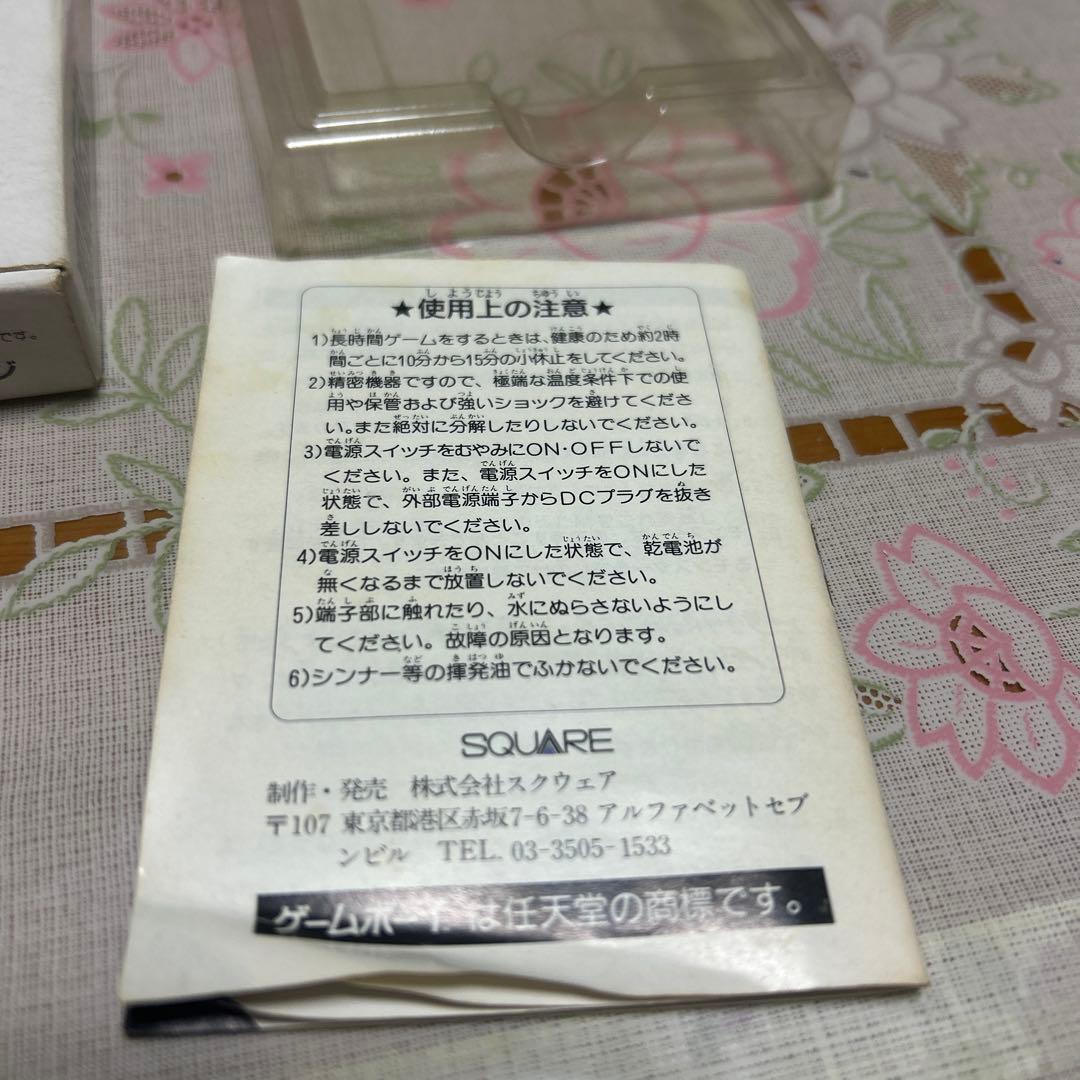 です。
★使用上の注意★
1)長時間ゲームをするときは、健康のため約2時
間ごとに10分から15分の小休止をしてください。
2)精密機器ですので、極端な温度条件下での使
用や保管および強いショックを避けてくださ
い。また絶対に分解したりしないでください。
3)電源スイッチをむやみにON・OFFしないで
ください。また、電源スイッチをONにした
状態で、外部電源端子からDCプラグを抜き
差ししないでください。
4)電源スイッチをONにした状態で、乾電池が
無くなるまで放置しないでください。
5)端子部に触れたり、水にぬらさないようにし
てください。故障の原因となります。
6)シンナー等の揮発油でふかないでください。
SQUARE
制作・発売 株式会社スクウェア
〒107 東京都港区赤坂7-6-38 アルファベットセブ
ンビル TEL. 03-3505-1533
ゲームボーイは任天堂の商標です。